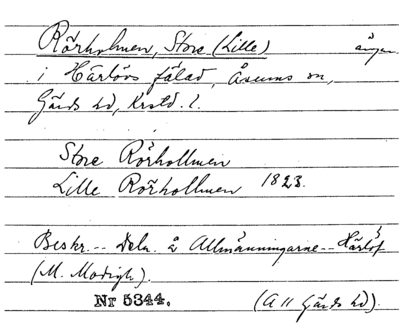 Rörholmen, Stora (Lille) ängar
i Härlövs fälad, Åsums sn,
Gärds hd, Krstd. l.
Store Rörhollmen
Lille Rörhollmen 1823.
Beskr. -- Deln. å Allmänningarne -- Härlöf
(M. Modigh).
Nr 5344. (A 11 Gärds hd).